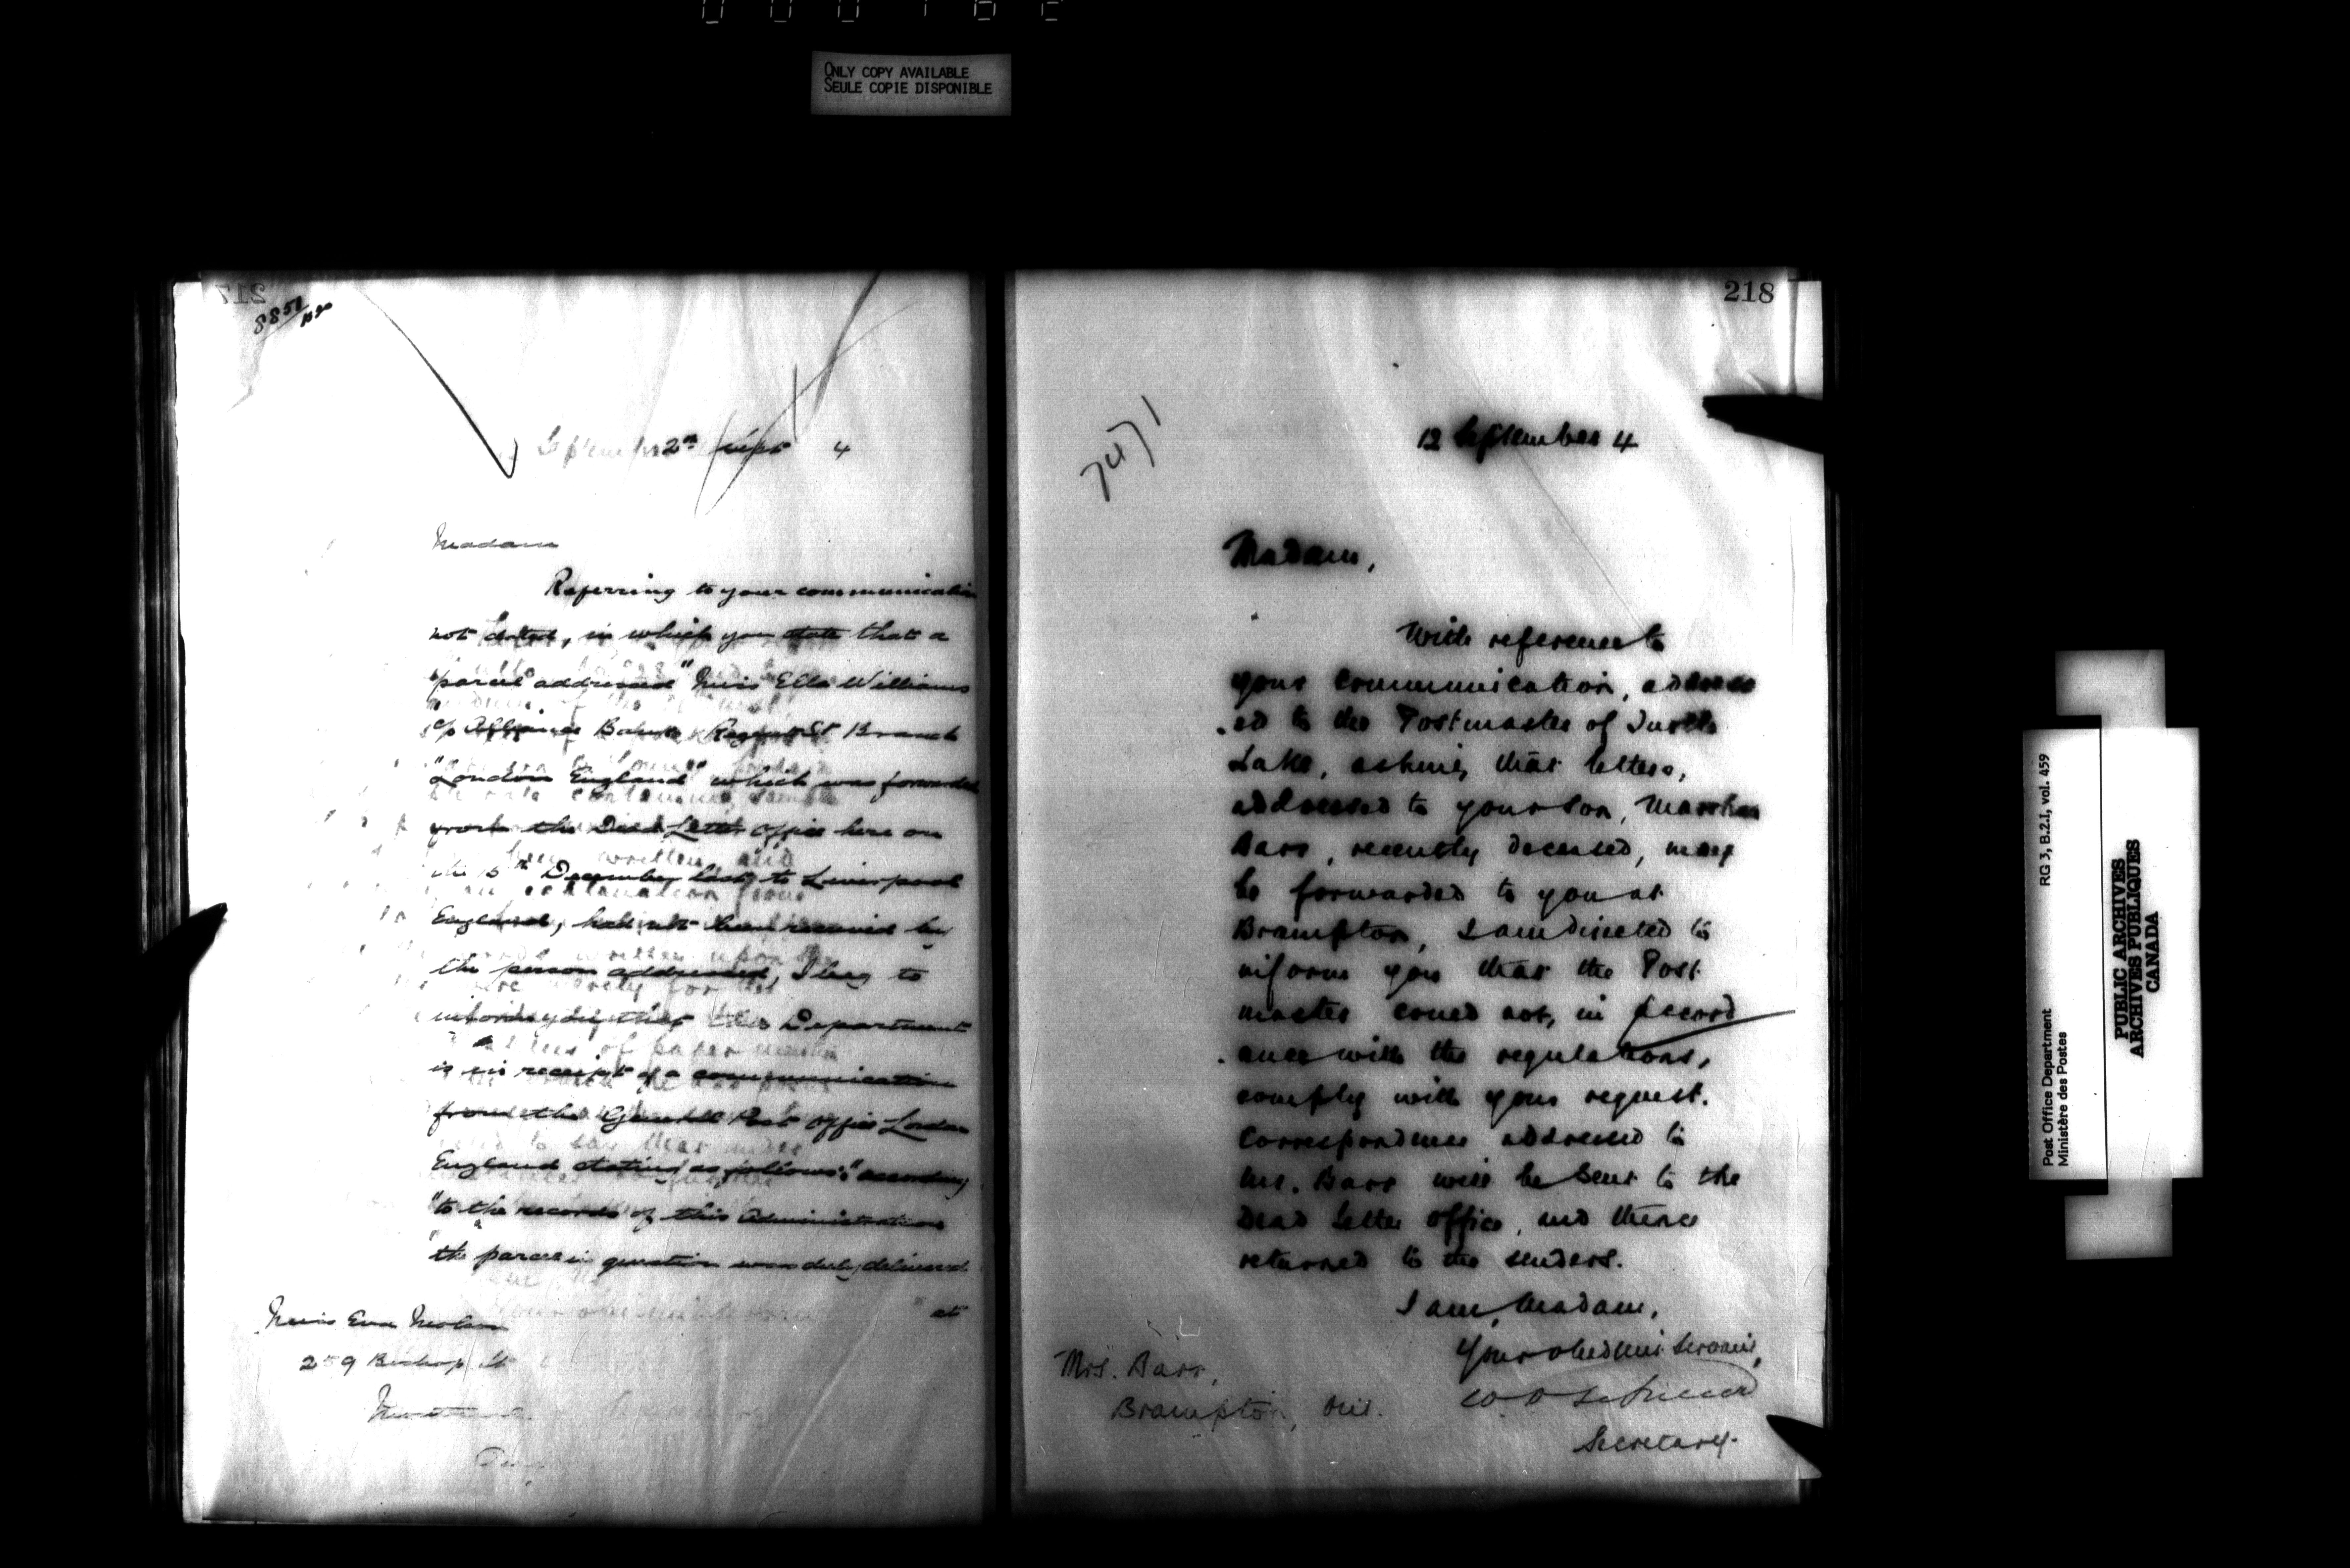 ONLY COPY AVAILABLE
SEULE COPIE DISPONIBLE
217
8851
2nd Sept 4
Madam
Referring to your communication
not dated, in which you state that a
"parcel" addressed "Miss Ella Williams
c/o Alliance Bank Regent St Branch
"London England" which was forwarded
from the Dead Letter Office here on
the 5th December last to Liverpool
England, had not been received by
the person addressed, I beg to
inform you that this Department
is in receipt of a communication
from the General Post Office London
England stating as follows: "according
"to the records of this Administration
"the parcel in question was duly delivered
"at
Miss Eva
259 Bishop St
Montreal
218
7471
12 September 4
Madam,
With reference to
your communication, address
ed to the Postmaster of
Lake, asking that letters,
addressed to your son,
Barr, recently deceased, may
be forwarded to you at
Brampton, I am directed to
inform you that the Post
master could not, in accord
ance with the regulations,
comply with your request.
Correspondence addressed to
Mr. Barr will be sent to the
Dead Letter Office, and thence
returned to the senders.
I am, Madam,
Your obedient Servant,
Secretary.
Mrs. Barr,
Brampton, Ont.
RG 3, B.2.I, vol. 459
Post Office Department
Ministère des Postes
PUBLIC ARCHIVES
ARCHIVES PUBLIQUES
CANADA